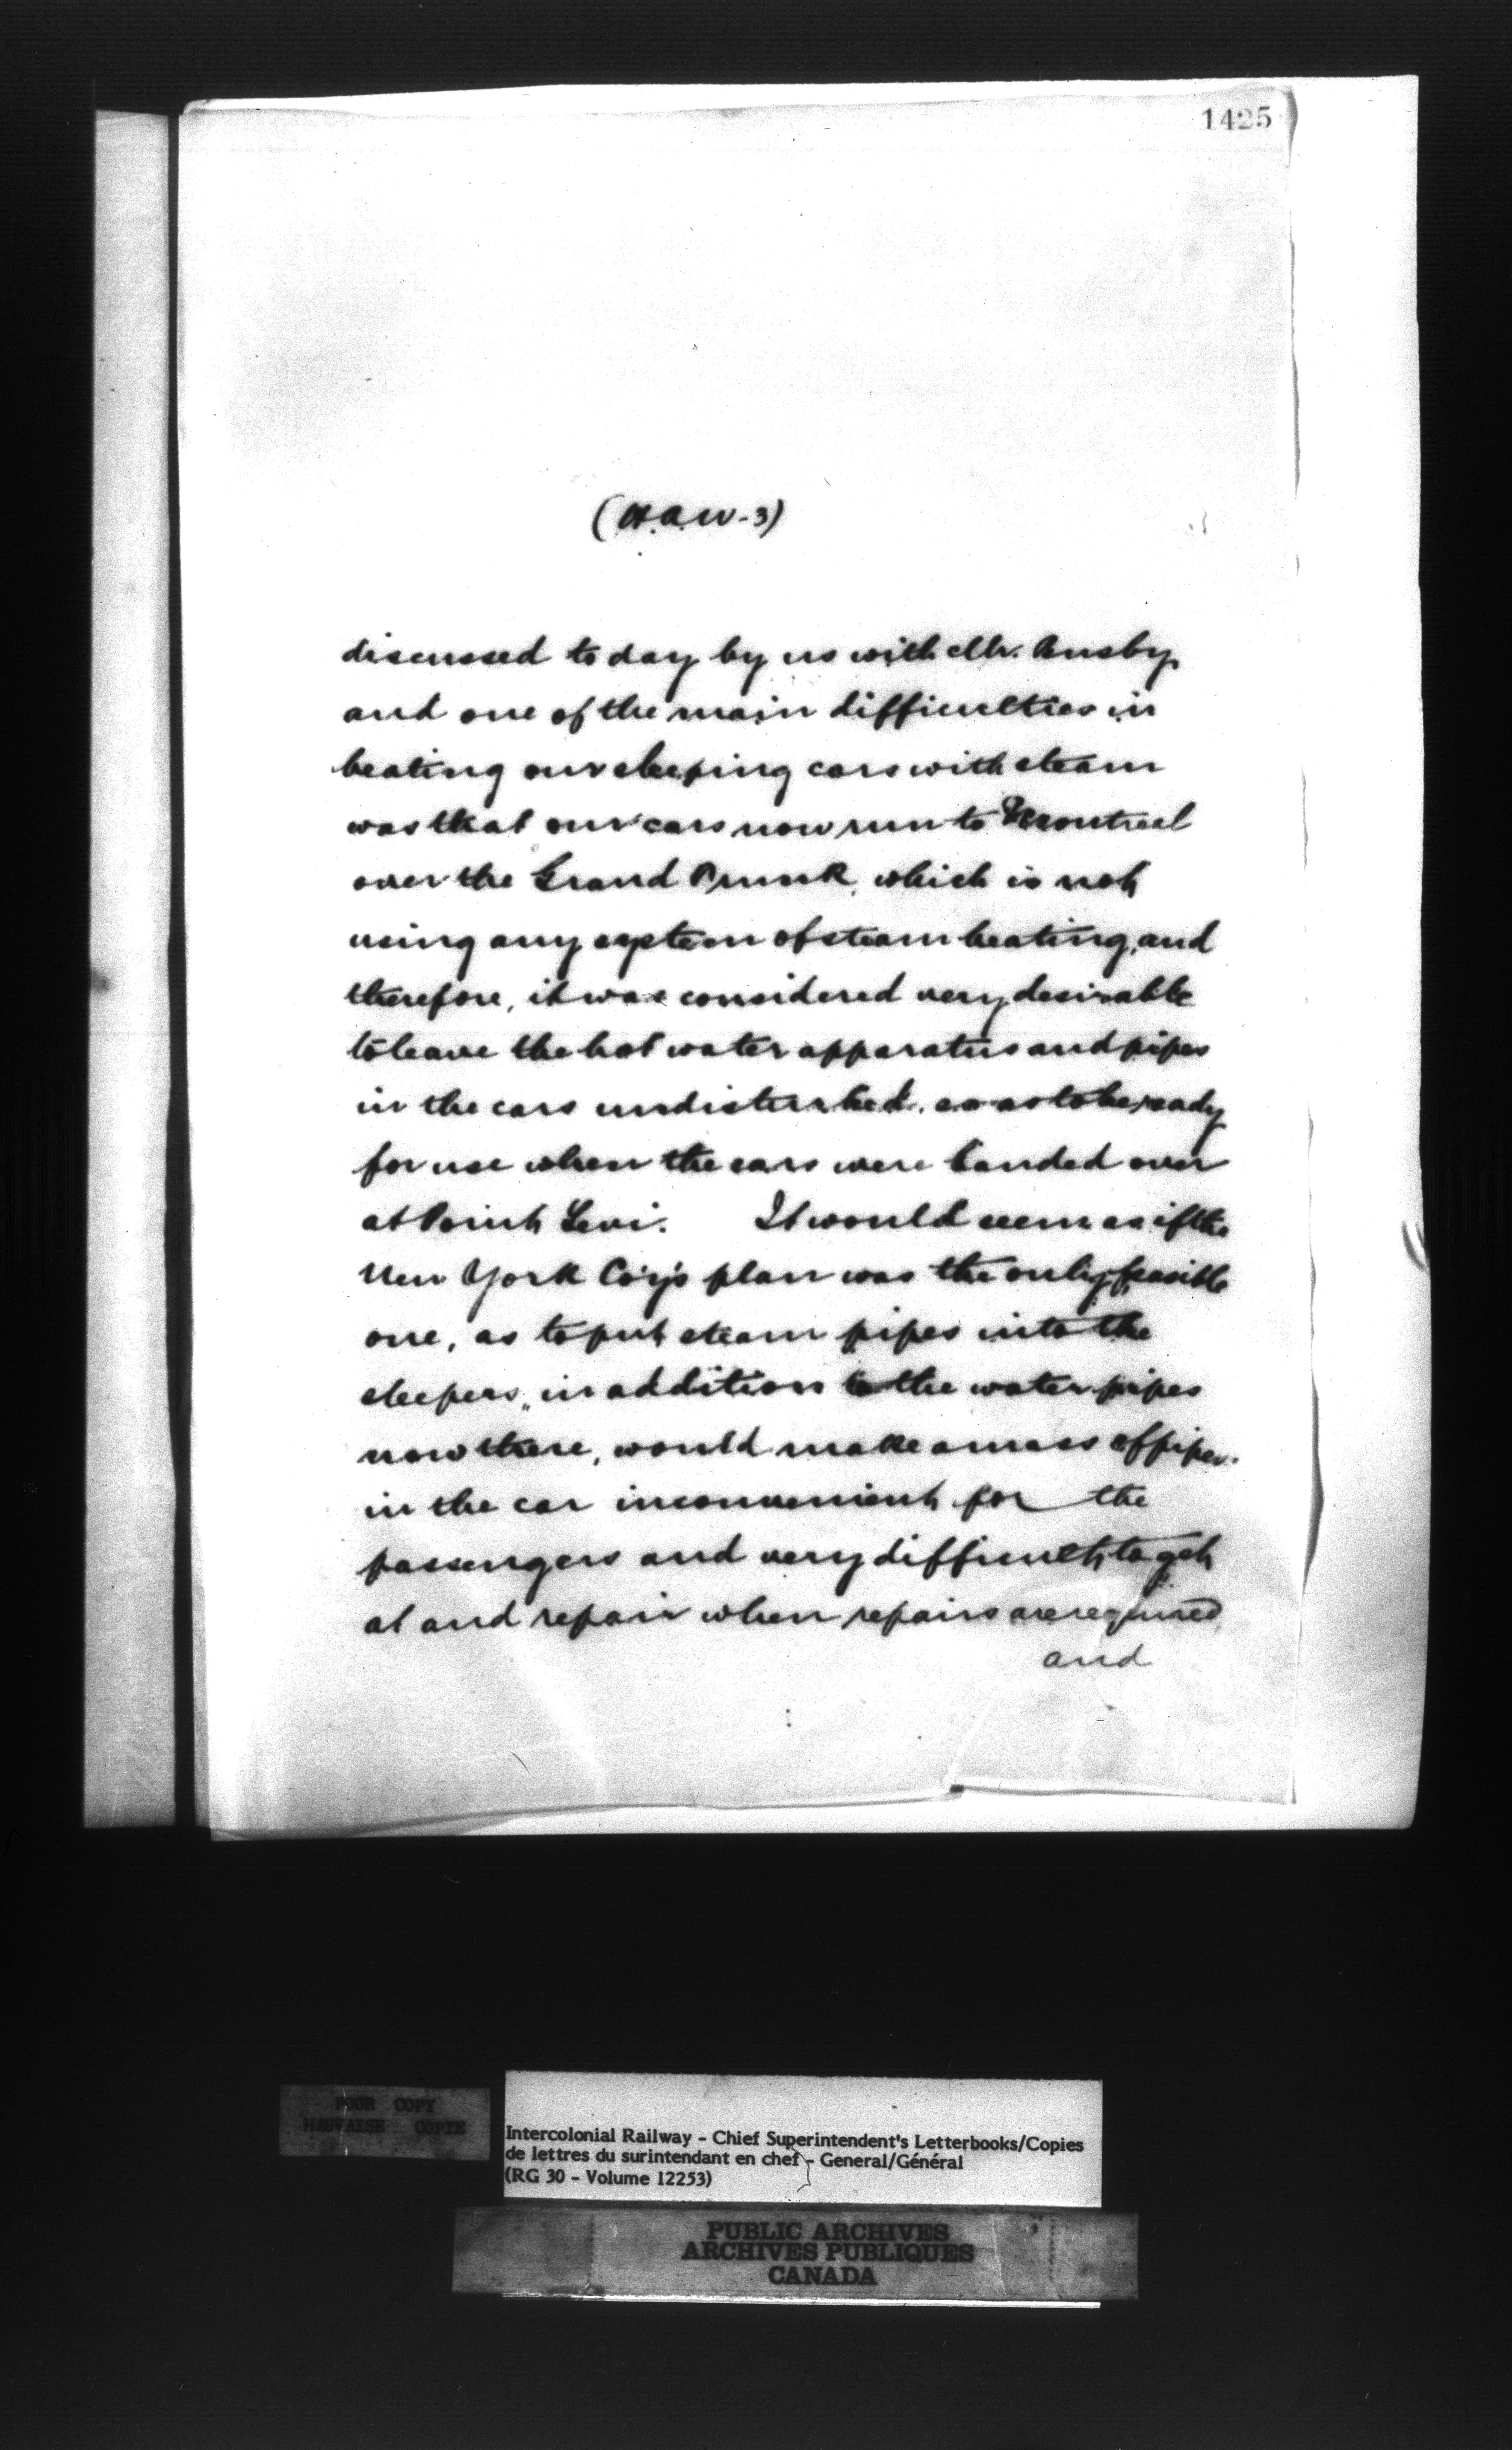 1425
(H.A.W-3)
discussed to day by us with Mr. Busby,
and one of the main difficulties in
heating our sleeping cars with steam
was that our cars now run to Montreal
over the Grand Trunk, which is not
using any system of steam heating, and
therefore, it was considered very desirable
to leave the hot water apparatus and pipes
in the cars undisturbed, so as to be ready
for use when the cars were handed over
at Point Levi. It would seem as if the
New York Co'y's plan was the only feasible
one, as to put steam pipes into the
sleepers, in addition to the water pipes
now there, would make a mass of pipes
in the car inconvenient for the
passengers and very difficult to get
at and repair when repairs are required
and
POOR COPY
MAUVAISE COPIE
Intercolonial Railway - Chief Superintendent's Letterbooks/Copies
de lettres du surintendant en chef - General/Général
(RG 30 - Volume 12253)
PUBLIC ARCHIVES
ARCHIVES PUBLIQUES
CANADA